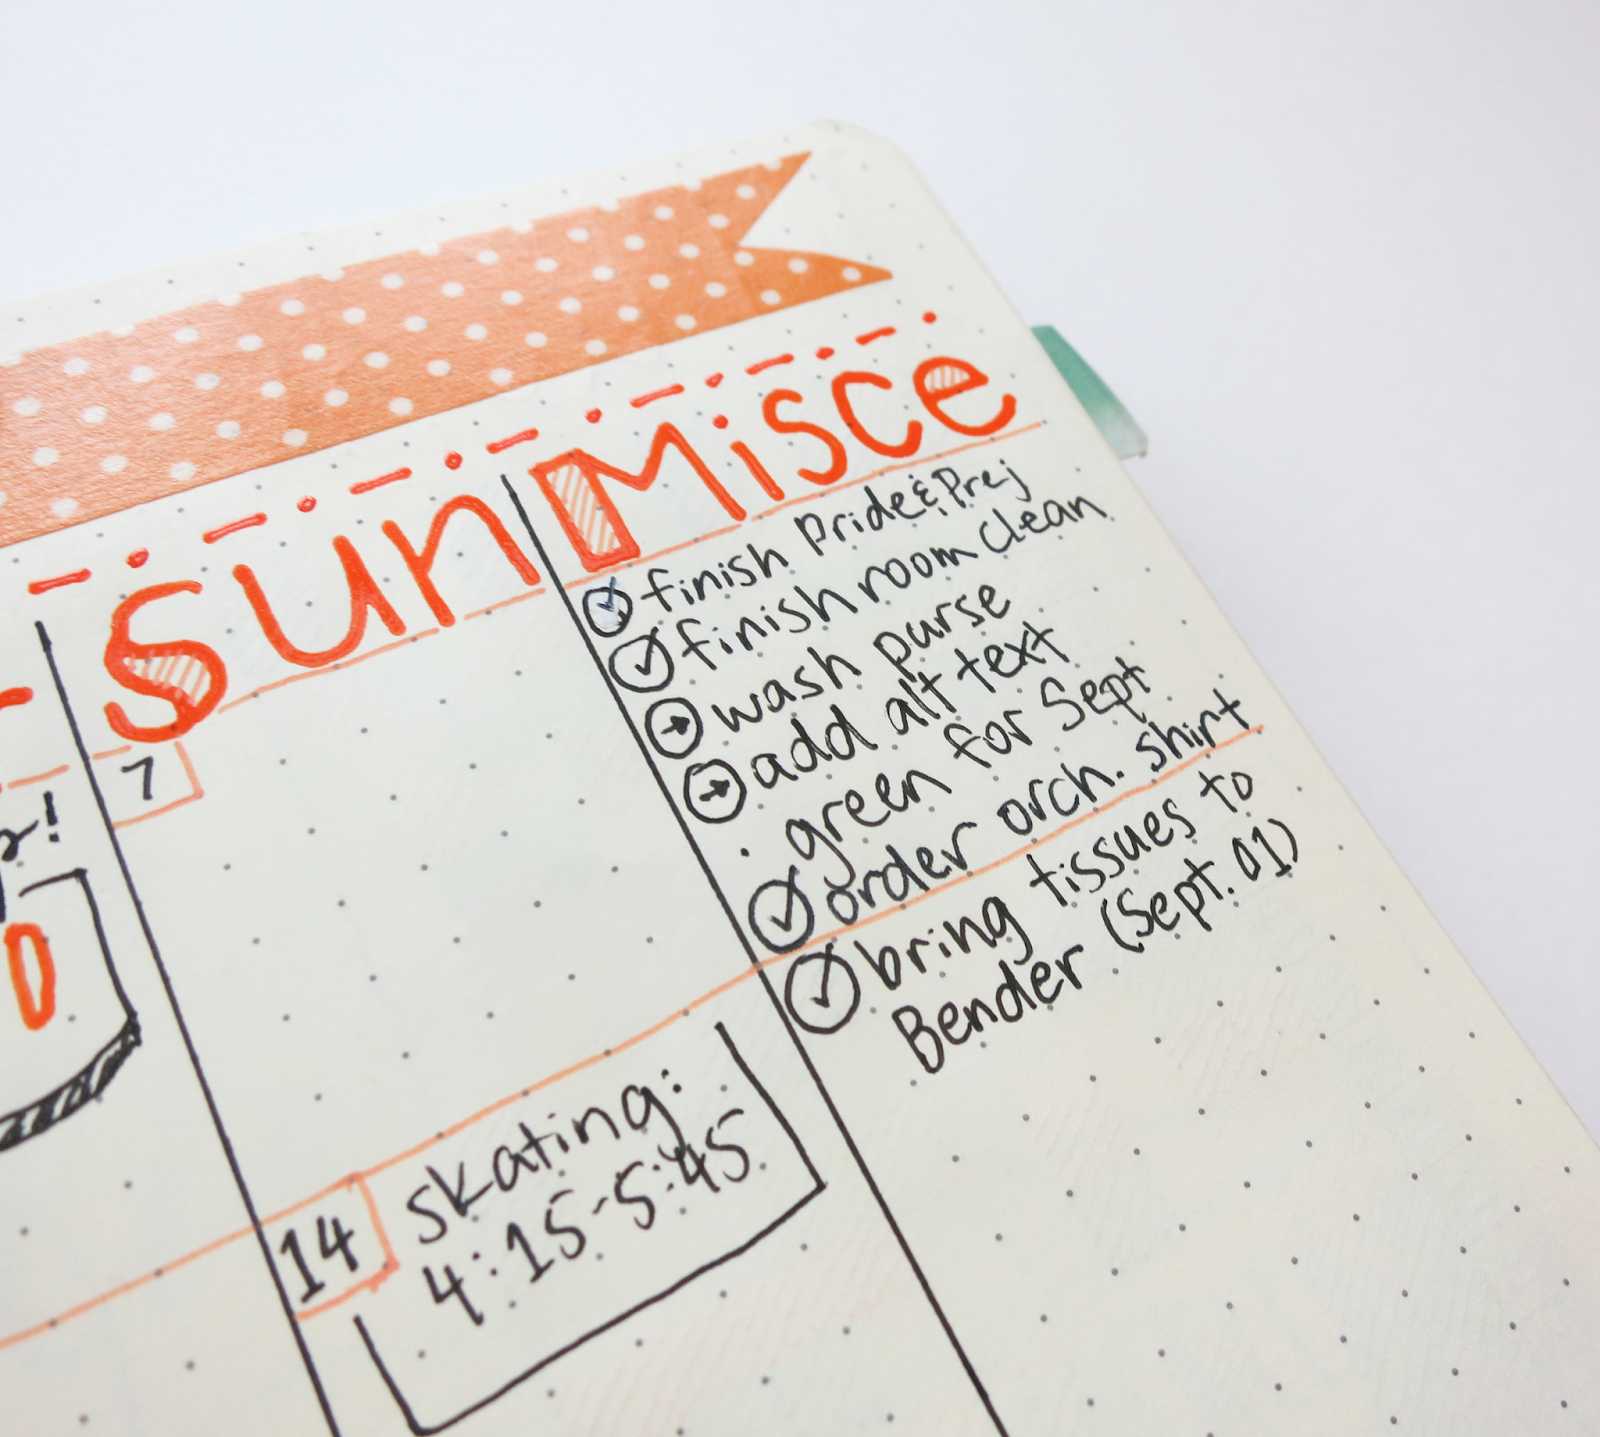 sun
Misce
7
finish Pride & Prej
finish room clean
wash purse
add alt text
green for Sept
order orch. shirt
bring tissues to
Bender (Sept. 01)
14
skating:
4:15-5:45